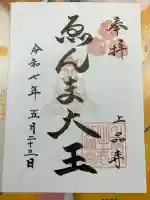 奉拝
上品寺
ゑんま大王
令和七年五月二十三日